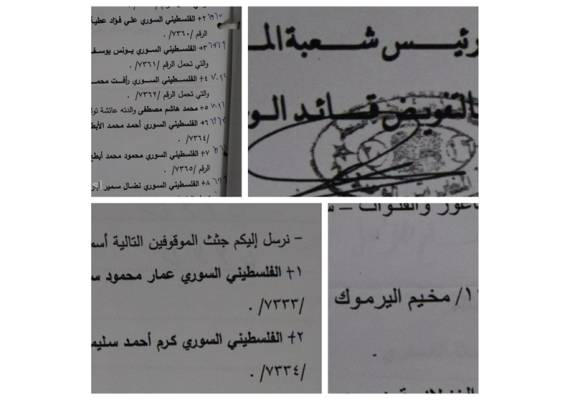 +٢ الفلسطيني السوري علي فؤاد عطية
الرقم /٧٣٦٠/ .
+٣ الفلسطيني السوري يونس يوسف
والتي تحمل الرقم /٧٣٦١/ .
+٤ الفلسطيني السوري رأفت محمد
والتي تحمل الرقم /٧٣٦٢/ .
+٥ محمد هاشم مصطفى والدته عائشة
+٦ الفلسطيني السوري أحمد محمد
/٧٣٦٤/ .
+٧ الفلسطيني السوري محمود محمد
الرقم /٧٣٦٥/ .
+٨ الفلسطيني السوري نضال سمير
رئيس شعبة الم
بالتفويض قائد الو
– نرسل إليكم جثث الموقوفين التالية أسم
+١ الفلسطيني السوري عمار محمود س
/٧٣٣٣/ .
+٢ الفلسطيني السوري كرم أحمد سليم
/٧٣٣٤/ .
والقنوات –
١/ مخيم اليرموك
.